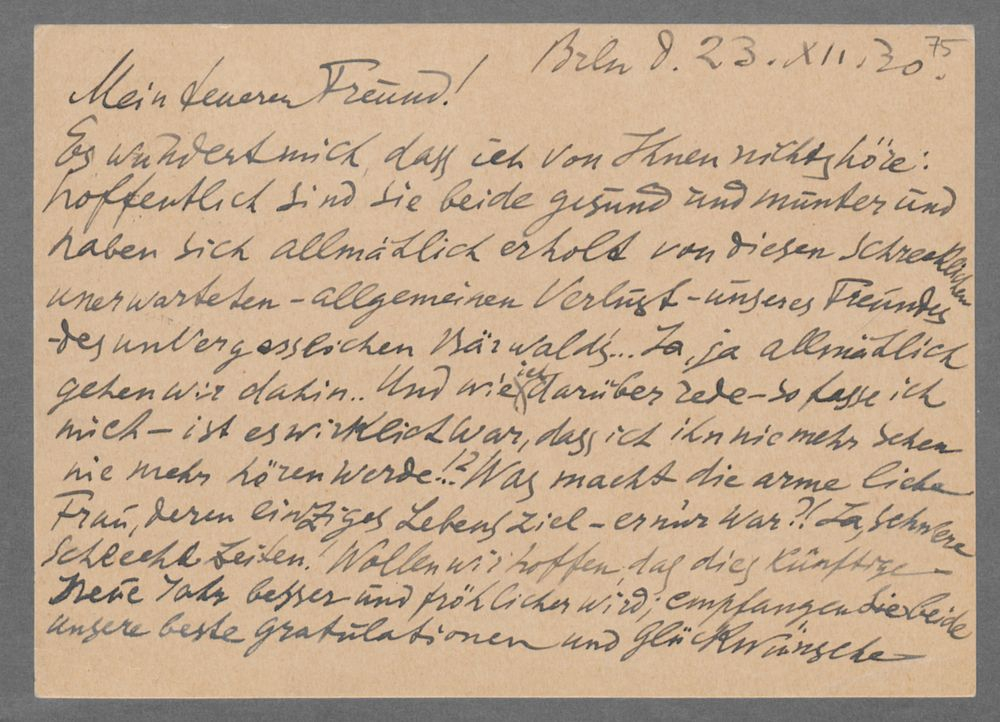 75
Brln d. 23. XII. 30.
Mein teueren Freund!
Es wundert mich, dass ich von Ihnen nichts höre:
hoffentlich sind Sie beide gesund und munter und
haben sich allmählich erholt von diesen schrecklichen
unerwarteten – allgemeinen Verlust – unseres Freundes
– des unvergesslichen Bärwalds... Ja, ja allmählich
gehen wir dahin.. Und wie ich darüber rede – so fasse ich
mich – ist es wirklich war, dass ich ihn nie mehr sehen
nie mehr hören werde!? Was macht die arme liebe
Frau, deren einziges Lebensziel – er nur war?! Ja, schwere
schlecht Zeiten! Wollen wir hoffen, das dies künftige –
Neue Jahr besser und fröhlicher wird; empfangen Sie beide
unsere beste gratulationen und Glückwünsche –